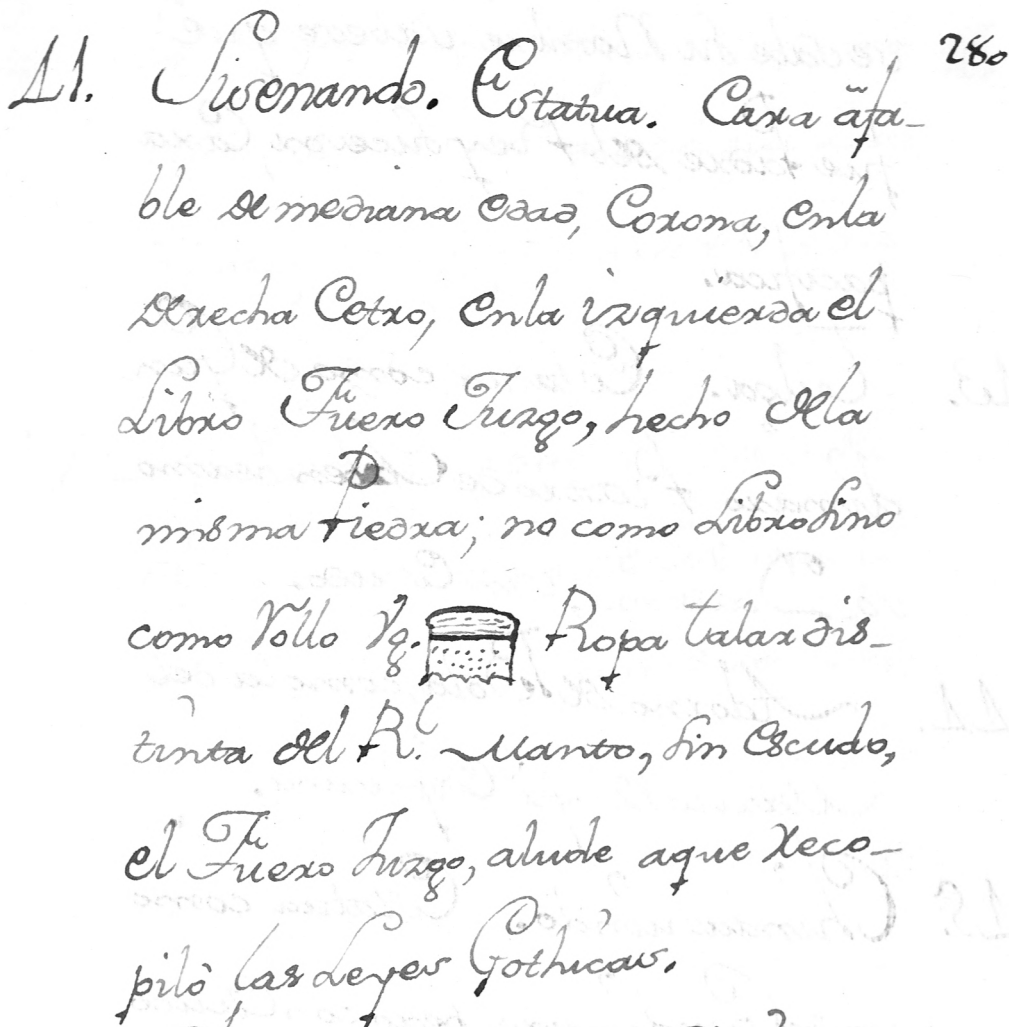 280
11. Sisenando. Estatua. Cara afa-
ble de mediana edad, Corona, en la
derecha Cetro, en la izquierda el
Libro Fuero Juzgo, hecho de la
misma Piedra; no como Libro sino
como Rollo Vg. Ropa talar dis-
tinta del Rl. Manto, sin Escudo,
el Fuero Juzgo, alude aque reco-
pilò las Leyes Gothicas.